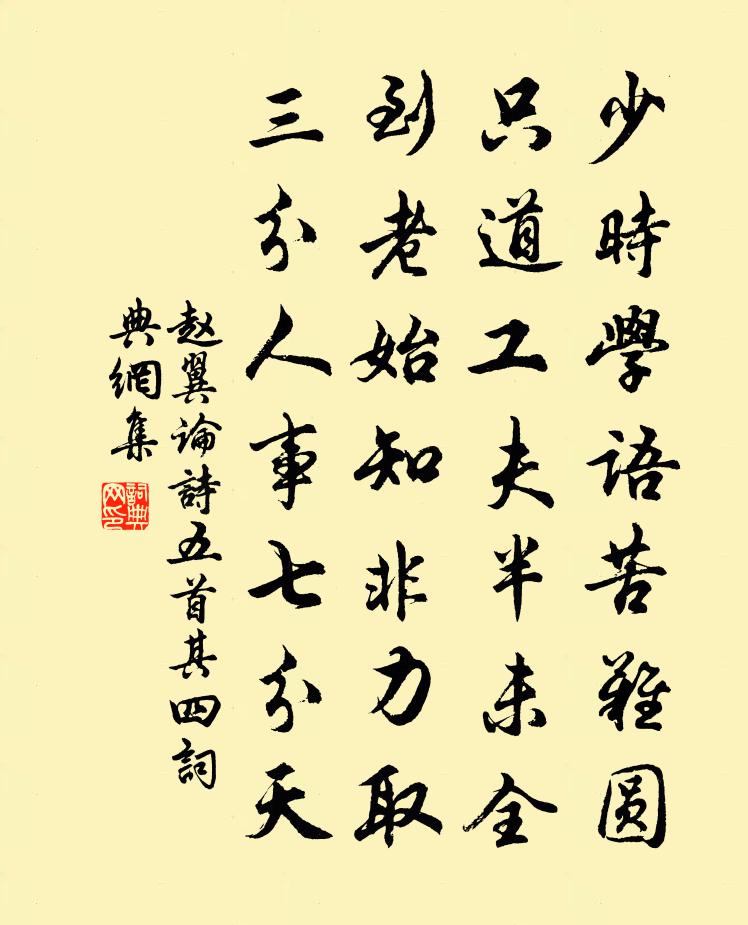 少時學語苦難圆
只道工夫半未全
到老始知非力取
三分人事七分天
赵翼论詩五首其四詞
典網集
詞典网印